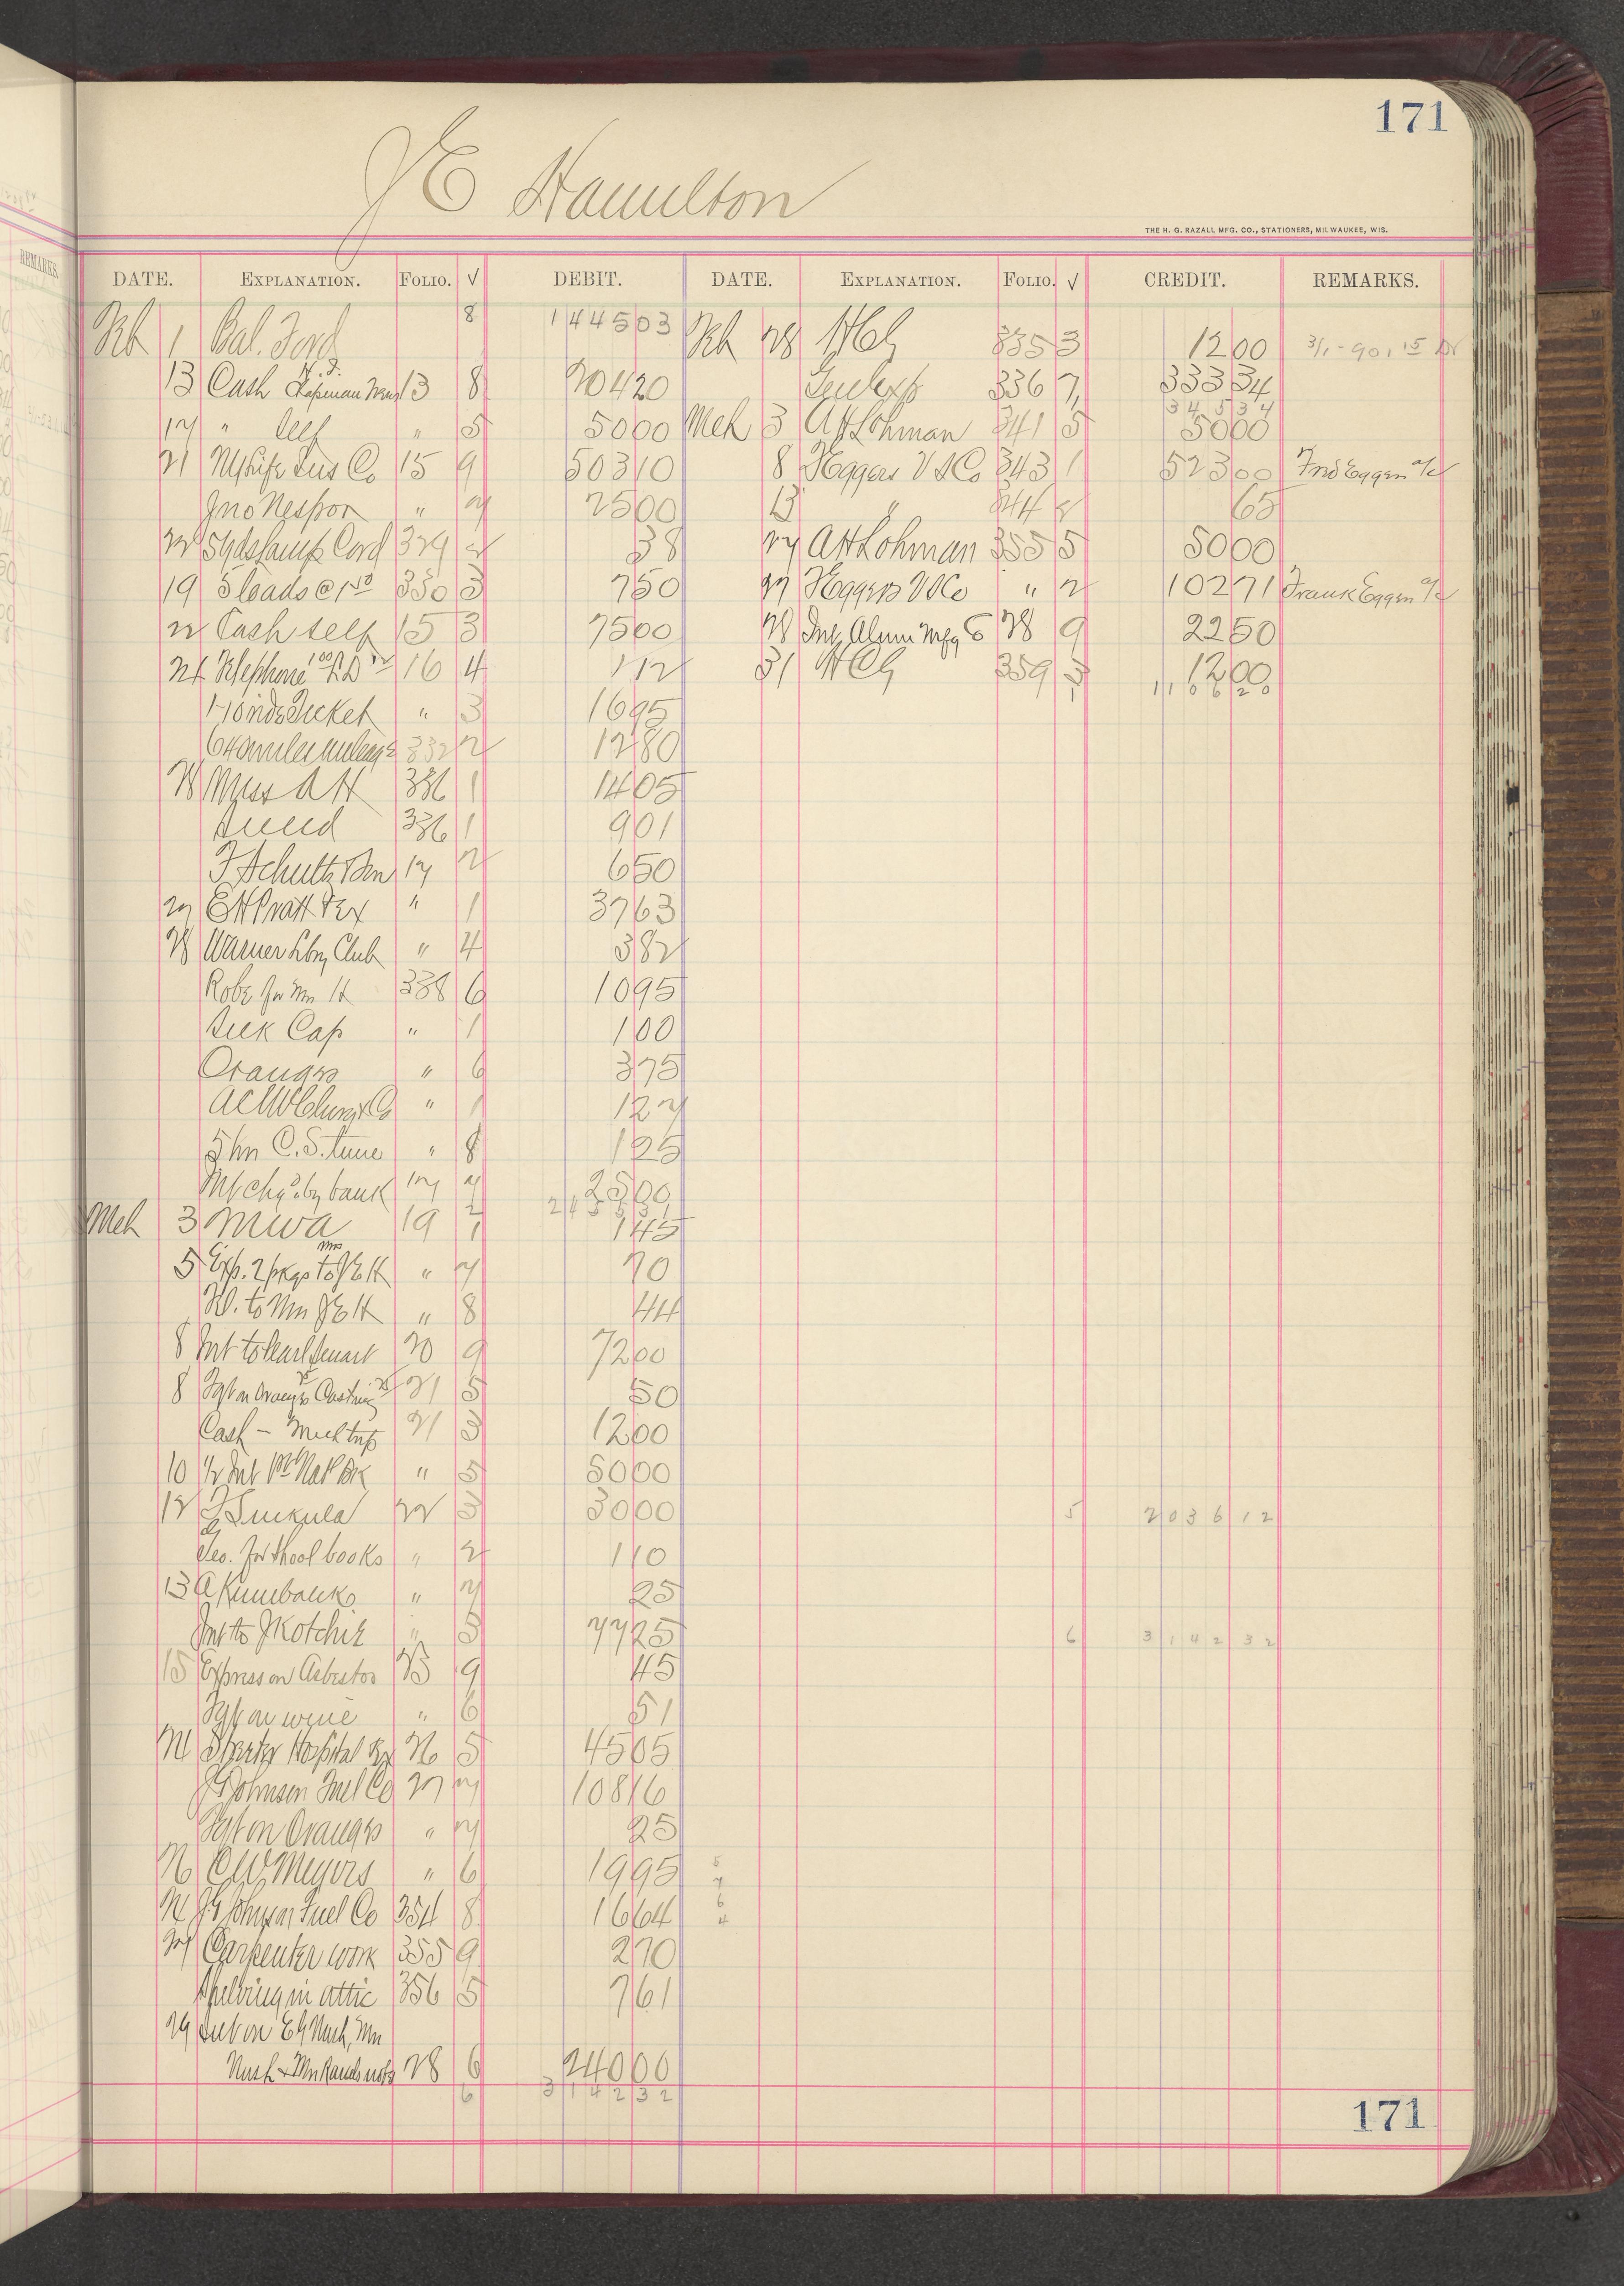 171
J E Hamilton
THE H. G. RAZALL MFG. CO., STATIONERS, MILWAUKEE, WIS.
REMARKS.
DATE. EXPLANATION. FOLIO. √ DEBIT. DATE. EXPLANATION. FOLIO. √ CREDIT. REMARKS.
Feb 1 Bal. Ford 8 144503 Feb 28 HCG 335 3 1200 3/1-90,15 Dr
13 Cash 13 8 20420 336 7 33334
34534
17 " Self " 5 5000 Mch 3 AH Lohman 341 5 5000
21 Life Ins Co 15 9 50310 8 Heggers V & Co 343 1 52300 Eggen a/c
Jno Nespor " 7 2500 13 " 344 8 65
Cord 329 2 38 27 AH Lohman 355 5 5000
19 5 loads @ 1 50 330 3 750 27 Heggers V & Co " 2 10271 Frank Eggen a/c
22 Cash self 15 3 7500 28 Int. Alum Mfg Co 28 9 2250
24 Telephone 16 4 112 31 HCG 359 3 1200
Ticket " 3 1695
110620
332 2 1280
28 Miss A H 336 1 1405
336 1 901
17 2 650
27 EH Pratt Tex " 1 3763
28 Warner Lbry Club " 4 382
Robe for Mrs H 338 6 1095
Silk Cap " 1 100
Oranges " 6 375
" 1 127
5 hrs C. S. time " 8 125
Int chgd by bank 17 7 2500
245551
Mch 3 MWA 19 1 145
5 Exp. 2 pkgs to Mrs JEH " 7 70
to Mrs JEH " 8 44
8 Int to Pearl 20 9 7200
8 Fgt on Oranges 25 Casting 25 21 5 50
Cash - 21 3 1200
10 1/2 Int 1st Nat Bk " 5 5000
12 22 3 3000 5 203612
Geo. for school books " 2 110
13 A " 7 25
Int to J Kotchik " 5 7725 6 314232
15 Express on Asbestos 23 9 45
Fgt on wine " 6 51
21 Hospital 26 5 4505
J G Johnson Fuel Co 27 7 10816
Fgt on Oranges " 7 25
26 C W Meyers " 6 1995 5
7
21 J G Johnson Fuel Co 354 8 1664 6
4
27 Carpenter work 355 9 270
Shelving in attic 356 5 761
29 Int on EG Nash, Mrs
Nash & Mrs Rands note 28 6 24000
6 314232
171